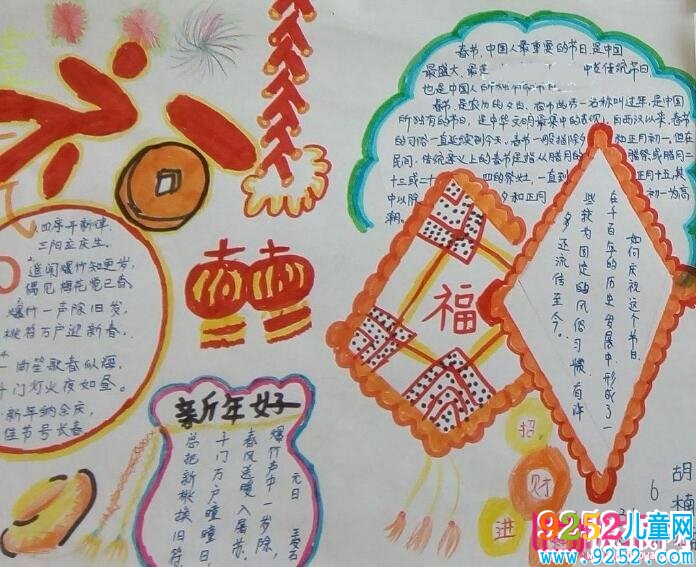 春节,中国人最重要的节日,是中国
最盛大、最
传统节日
也是中国人所独有的节日。
春节,是农历的
名称叫过年,是中国
所独有的节日,是中华文明最集中的表现。自西汉以来,春节
的习俗一直延续到今天。春节一般指除夕和正月初一。但在
民间,传统意义上的春节是指从腊月的
腊祭或腊月二
十三或二十四的祭灶,一直到正月十五,其
中以除夕和正月初一为高
潮。
如何庆祝这个节日
在千百年的历史发展中,形成了一
些较为固定的风俗习惯,有许
多还流传至今。
福
四序开新律
三阳应庆生。
遥闻爆竹知更岁,
偶见梅花觉已春
爆竹一声除旧岁,
桃符万户迎新春。
笙歌春似海
千门灯火夜如昼。
新年纳余庆,
佳节号长春
新年好
元日 王安石
爆竹声中一岁除,
春风送暖入屠苏。
千门万户曈曈日
总把新桃换旧符
招
财
进
6
胡楠
9252儿童网
www.9252.com